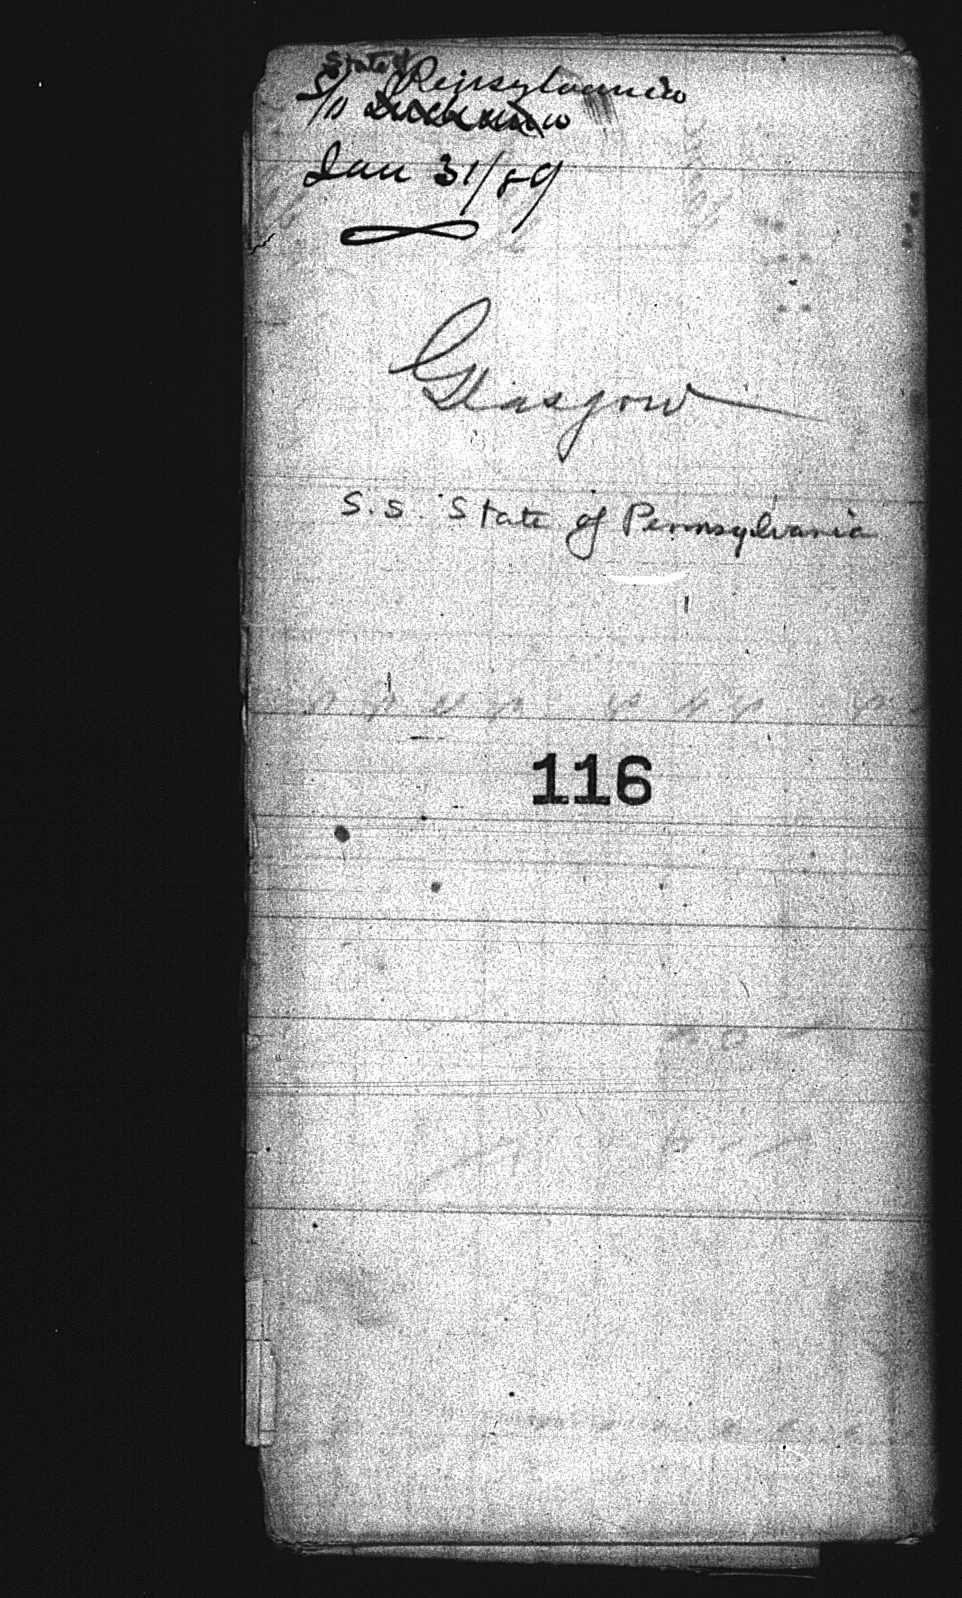 State of
S/S Pennsylvania
Jan 31/89
Glasgow
S.S. State of Pennsylvania
116